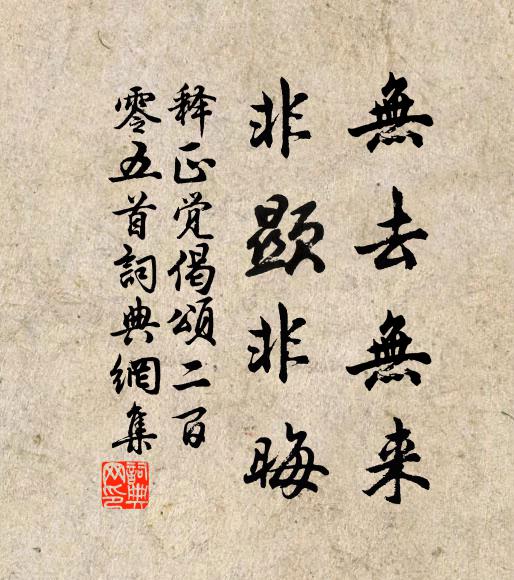 無去無来
非顕非晦
释正觉偈頌二百
零五首詞典網集
詞典
网印